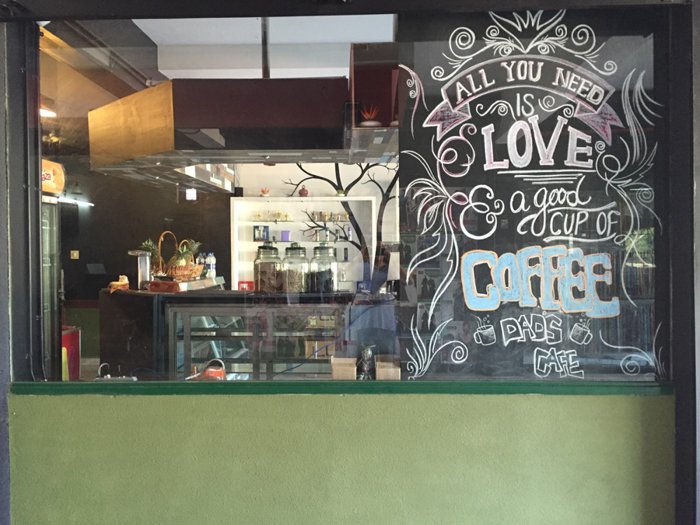 ALL YOU NEED
IS
LOVE
& a good
CUP OF
COFFEE
DAD'S
CAFE